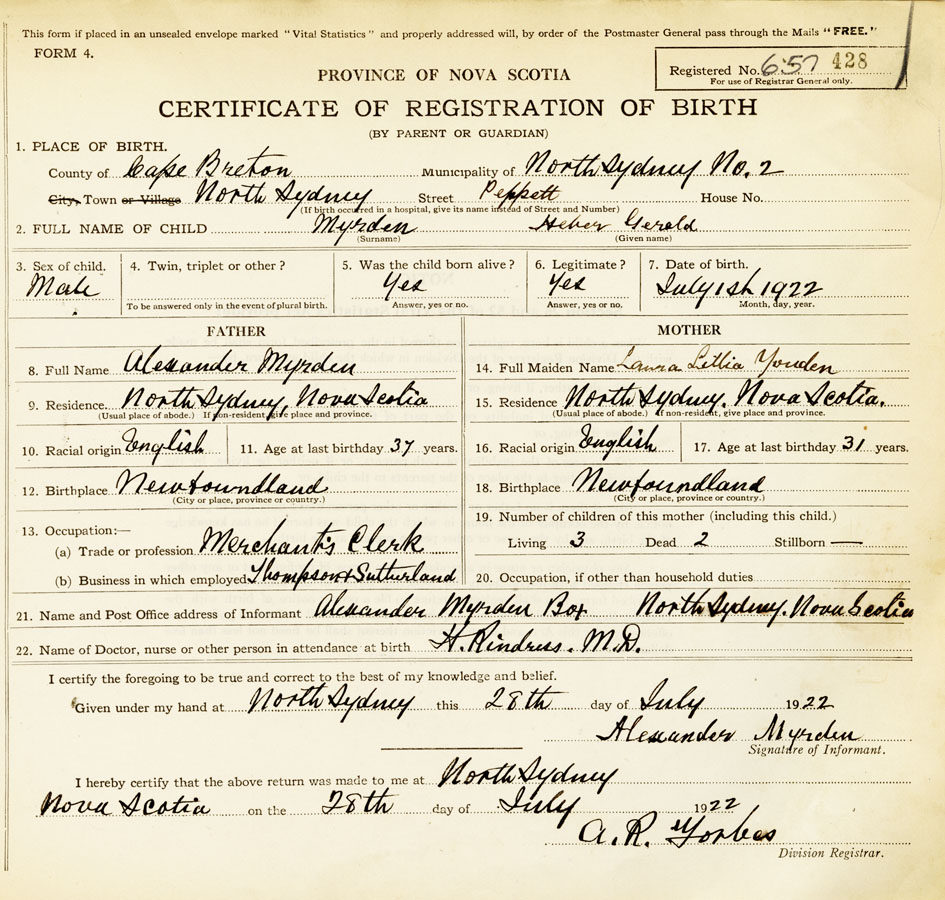 This form if placed in an unsealed envelope marked "Vital Statistics" and properly addressed will, by order of the Postmaster General pass through the Mails "FREE."
FORM 4.
Registered No. 657 428
For use of Registrar General only.
PROVINCE OF NOVA SCOTIA
CERTIFICATE OF REGISTRATION OF BIRTH
(BY PARENT OR GUARDIAN)
1. PLACE OF BIRTH.
County of Cape Breton Municipality of North Sydney No. 2
City, Town or Village North Sydney Street Peppett House No.
(If birth occurred in a hospital, give its name instead of Street and Number)
2. FULL NAME OF CHILD Myrden Heber Gerald
(Surname) (Given name)
3. Sex of child. 4. Twin, triplet or other? 5. Was the child born alive? 6. Legitimate? 7. Date of birth.
Male Yes Yes July 1st 1922
To be answered only in the event of plural birth. Answer, yes or no. Answer, yes or no. Month, day, year.
FATHER MOTHER
8. Full Name Alexander Myrden 14. Full Maiden Name Laura Lillia Youden
9. Residence. North Sydney, Nova Scotia 15. Residence North Sydney. Nova Scotia.
(Usual place of abode.) If non-resident, give place and province. (Usual place of abode.) If non-resident, give place and province.
10. Racial origin English 11. Age at last birthday 37 years. 16. Racial origin English 17. Age at last birthday 31 years.
12. Birthplace Newfoundland 18. Birthplace Newfoundland
(City or place, province or country.) (City or place, province or country.)
13. Occupation:— 19. Number of children of this mother (including this child.)
(a) Trade or profession Merchants Clerk Living 3 Dead 2 Stillborn —
(b) Business in which employed Thompson & Sutherland 20. Occupation, if other than household duties
21. Name and Post Office address of Informant Alexander Myrden Box North Sydney. Nova Scotia
22. Name of Doctor, nurse or other person in attendance at birth H. Rindress. M.D.
I certify the foregoing to be true and correct to the best of my knowledge and belief.
Given under my hand at North Sydney this 28th day of July 1922
Alexander Myrden
Signature of Informant.
I hereby certify that the above return was made to me at North Sydney
Nova Scotia on the 28th day of July 1922
A. R. Forbes
Division Registrar.